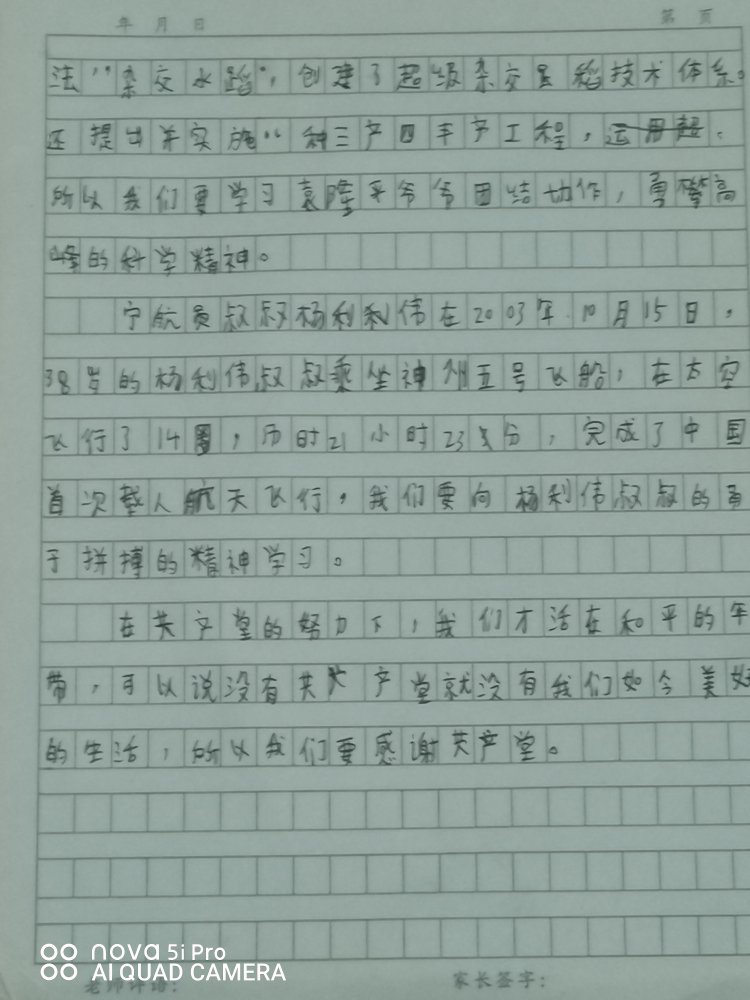 年 月 日 第 页
法"杂交水蹈",创建了超级杂交昰稻技术体系。
还提出并实施"种三产四丰产工程,运用超.
所以我们要学习袁隆平爷爷团结协作,勇攀高
峰的科学精神。
宁航员叔叔杨利利伟在2003年10月15日,
38岁的杨利伟叔叔乘坐神州五号飞船,在太空
飞行了14圈,历时21小时23分,完成了中国
首次载人航天飞行,我们要向杨利伟叔叔的勇
于拼搏的精神学习。
在共产堂的努力下,我们才活在和平的年
带,可以说没有共产堂就没有我们如今美好
的生活,所以我们要感谢共产堂。
nova 5i Pro
AI QUAD CAMERA
老师评语:
家长签字: